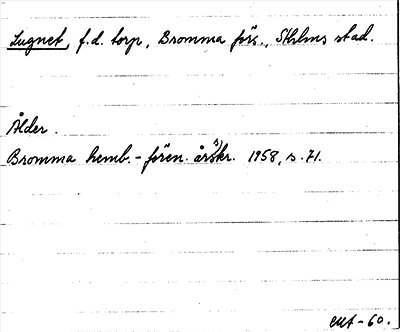 Lugnet, f.d. torp, Bromma förs., Sthlms stad.
Ålder.
Bromma hemb.-fören. årsskr. 1958, s. 71.
-60.